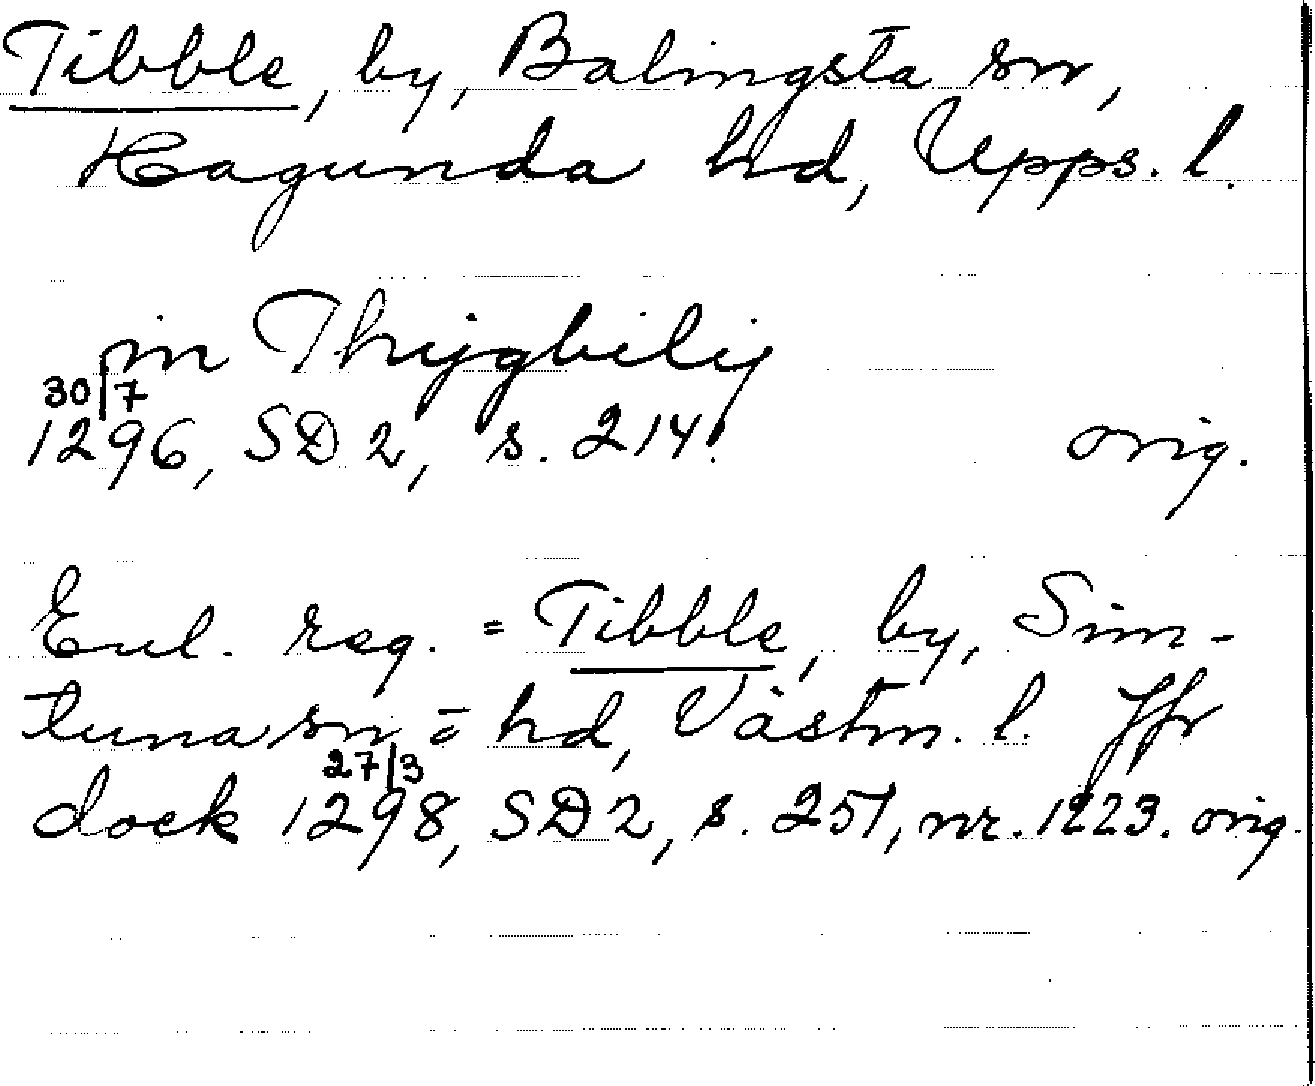 Tibble, by, Balingsta sn,
Hagunda hd, Upps. l.
in Thijgbilij
30/7
1296, SD 2, s. 214. orig.
Enl. reg. = Tibble, by, Sim-
tuna sn = hd, Västm. l. Jfr
27/3
dock 1298, SD 2, s. 251, nr. 1223. orig.